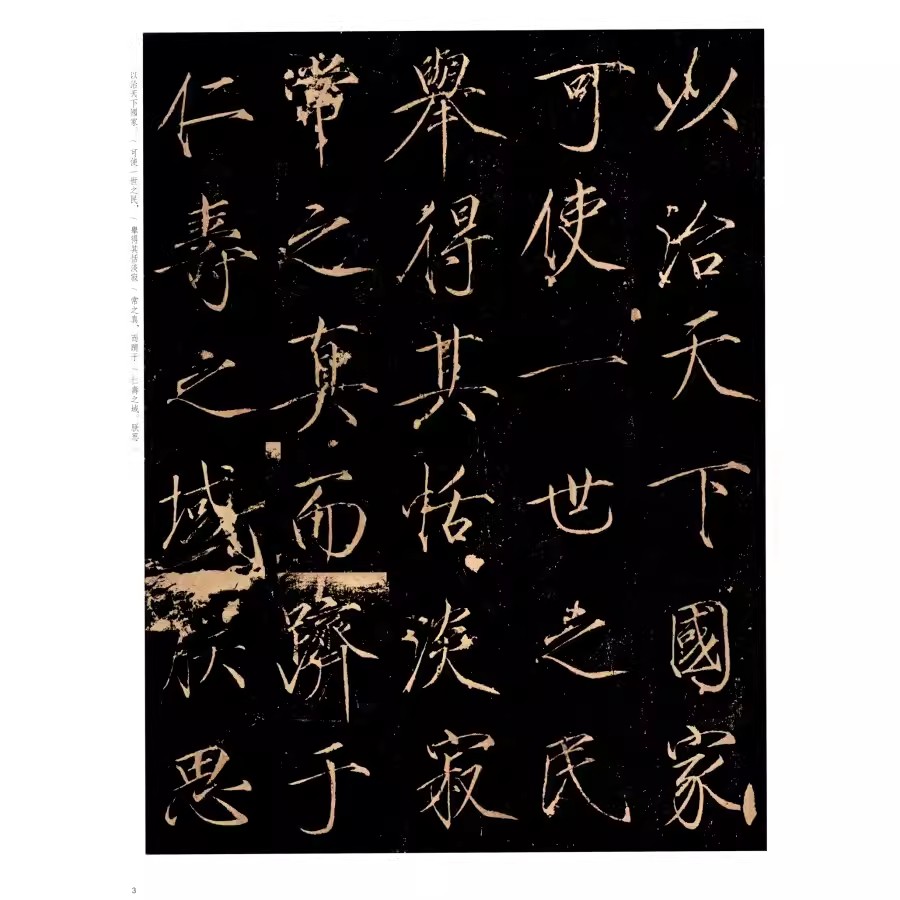 以治天下國家
可使一世之民
舉得其恬淡寂
常之真而躋于
仁壽之域朕思
以治天下國家 / 可使一世之民， / 舉得其恬淡寂 / 常之真，而躋于 / 仁壽之域。朕思
3